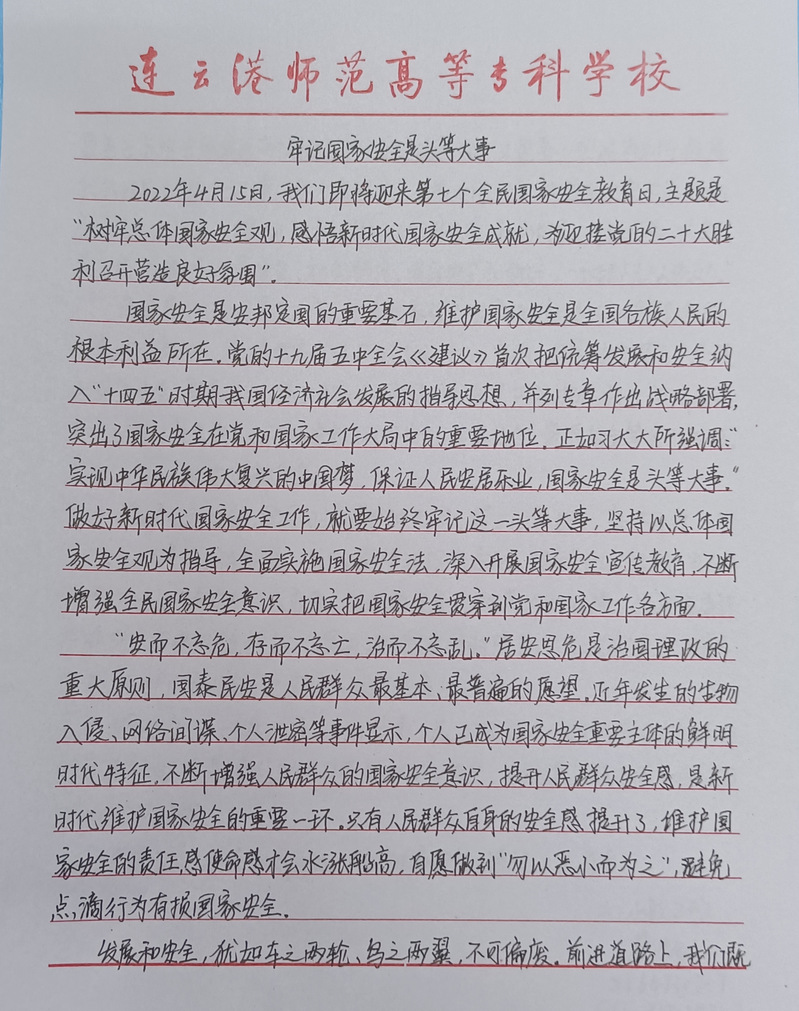 连云港师范高等专科学校
牢记国家安全是头等大事
2022年4月15日，我们即将迎来第七个全民国家安全教育日，主题是
“树牢总体国家安全观，感悟新时代国家安全成就，为迎接党的二十大胜
利召开营造良好氛围”。
国家安全是安邦定国的重要基石，维护国家安全是全国各族人民的
根本利益所在。党的十九届五中全会《建议》首次把统筹发展和安全纳
入“十四五”时期我国经济社会发展的指导思想，并列专章作出战略部署，
突出了国家安全在党和国家工作大局中的重要地位。正如习大大所强调：“
实现中华民族伟大复兴的中国梦，保证人民安居乐业，国家安全是头等大事。”
做好新时代国家安全工作，就要始终牢记这一头等大事，坚持以总体国
家安全观为指导，全面实施国家安全法，深入开展国家安全宣传教育，不断
增强全民国家安全意识，切实把国家安全贯穿到党和国家工作各方面。
“安而不忘危，存而不忘亡，治而不忘乱。”居安思危是治国理政的
重大原则，国泰民安是人民群众最基本、最普遍的愿望。近年发生的生物
入侵、网络间谍、个人泄密等事件显示，个人已成为国家安全重要主体的鲜明
时代特征，不断增强人民群众的国家安全意识，提升人民群众安全感，是新
时代维护国家安全的重要一环。只有人民群众自身的安全感提升了，维护国
家安全的责任感使命感才会水涨船高，自愿做到“勿以恶小而为之”，避免
点滴行为有损国家安全。
发展和安全，犹如车之两轮、鸟之两翼，不可偏废。前进道路上，我们既